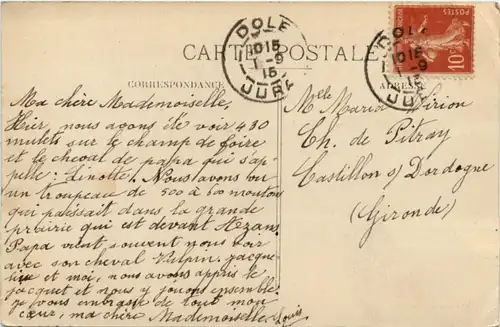 CARTE POSTALE
CORRESPONDANCE
ADRESSE
DOLE
1015
1-9
15
JURA
DOLE
1015
1-9
15
JURA
POSTES
10c
Ma chère Mademoiselle,
Hier, nous avons été voir 430
mulets sur le champ de foire
et le cheval de papa qui s'ap-
pelle: Linotte. Nous avons vu
un troupeau de 500 à 600 moutons
qui paissait dans la grande
prairie qui est devant
Papa vient souvent nous voir
avec son cheval Vulpin. Jacque-
line et moi, nous avons appris le
jacquet et nous y jouons ensemble.
Je vous embrasse de tout mon
cœur, ma chère Mademoiselle. Louis
Melle Maria Virion
Ch. de Pitray
Castillon s/ Dordogne
(Gironde)